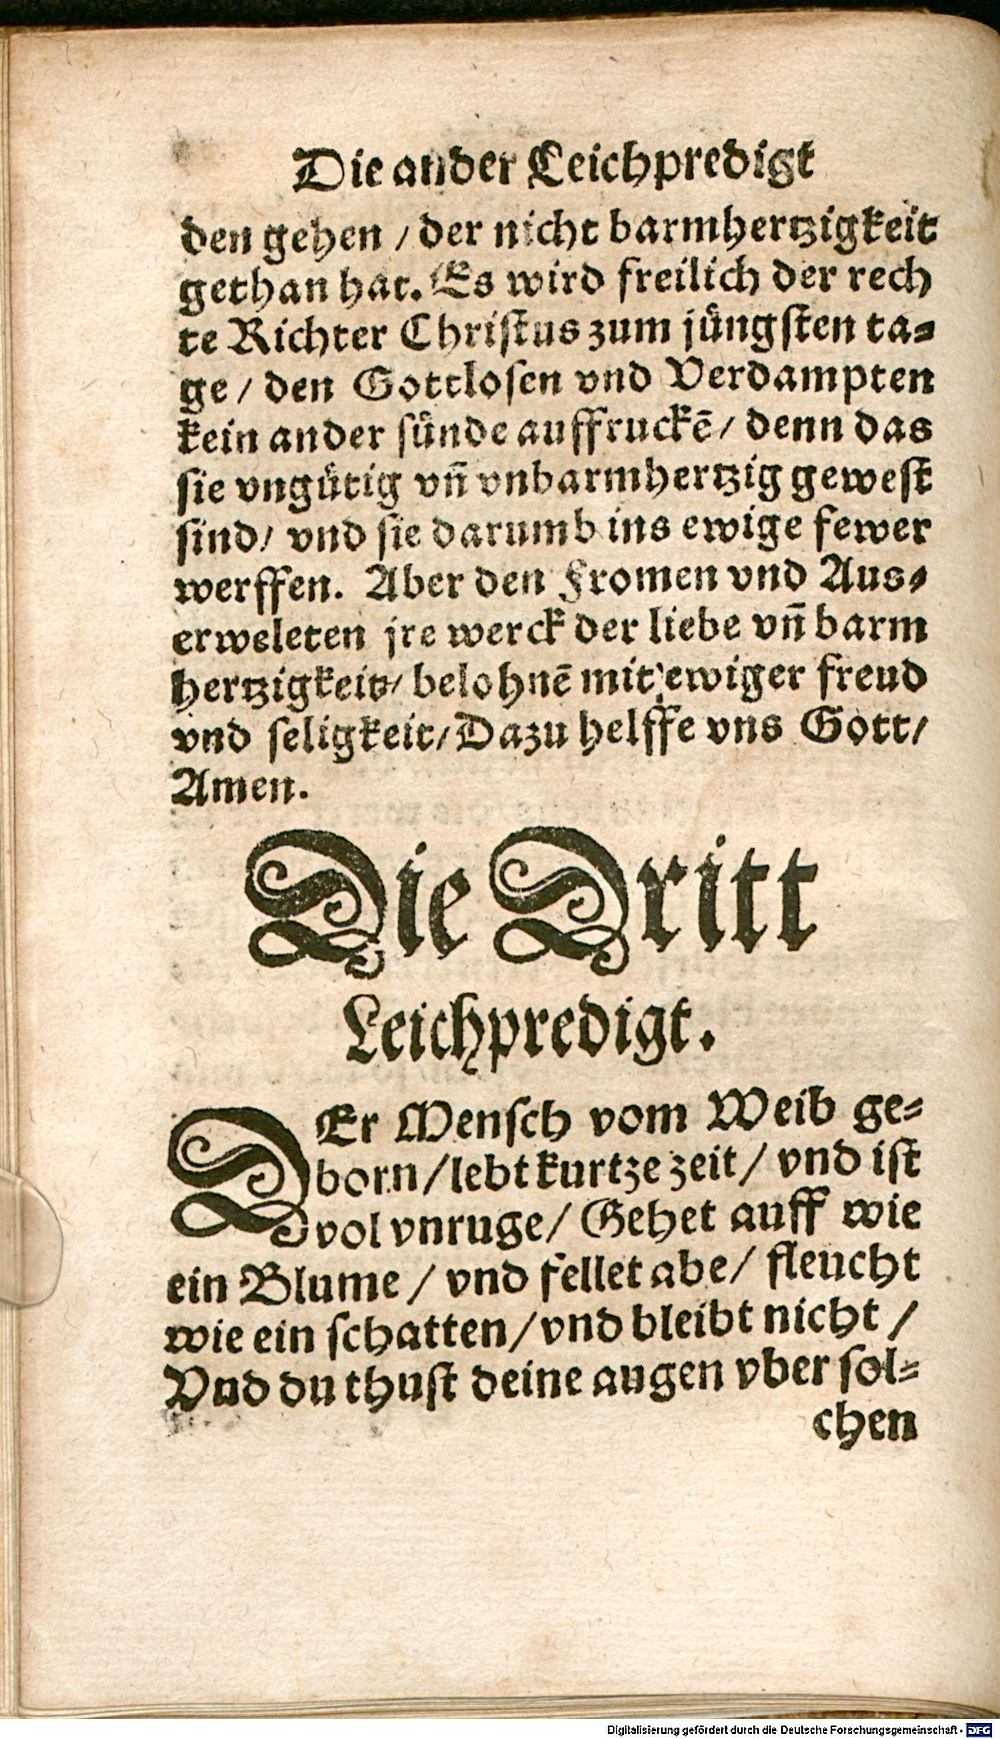 Die ander Leichpredigt
den gehen / der nicht barmhertzigkeit
gethan hat. Es wird freilich der rech
te Richter Christus zum jüngsten ta⸗
ge / den Gottlosen vnd Verdampten
kein ander sünde auffruckē / denn das
sie vngütig vn̄ vnbarmhertzig gewest
sind / vnd sie darumb ins ewige fewer
werffen. Aber den Fromen vnd Aus⸗
erweleten jre werck der liebe vn̄ barm
hertzigkeit / belohnē mit ewiger freud
vnd seligkeit / Dazu helffe vns Gott /
Amen.
Die Dritt
Leichpredigt.
DEr Mensch vom Weib ge⸗
born / lebt kurtze zeit / vnd ist
vol vnruge / Gehet auff wie
ein Blume / vnd fellet abe / fleucht
wie ein schatten / vnd bleibt nicht /
Vnd du thust deine augen vber sol⸗
chen
Digitalisierung gefördert durch die Deutsche Forschungsgemeinschaft - DFG